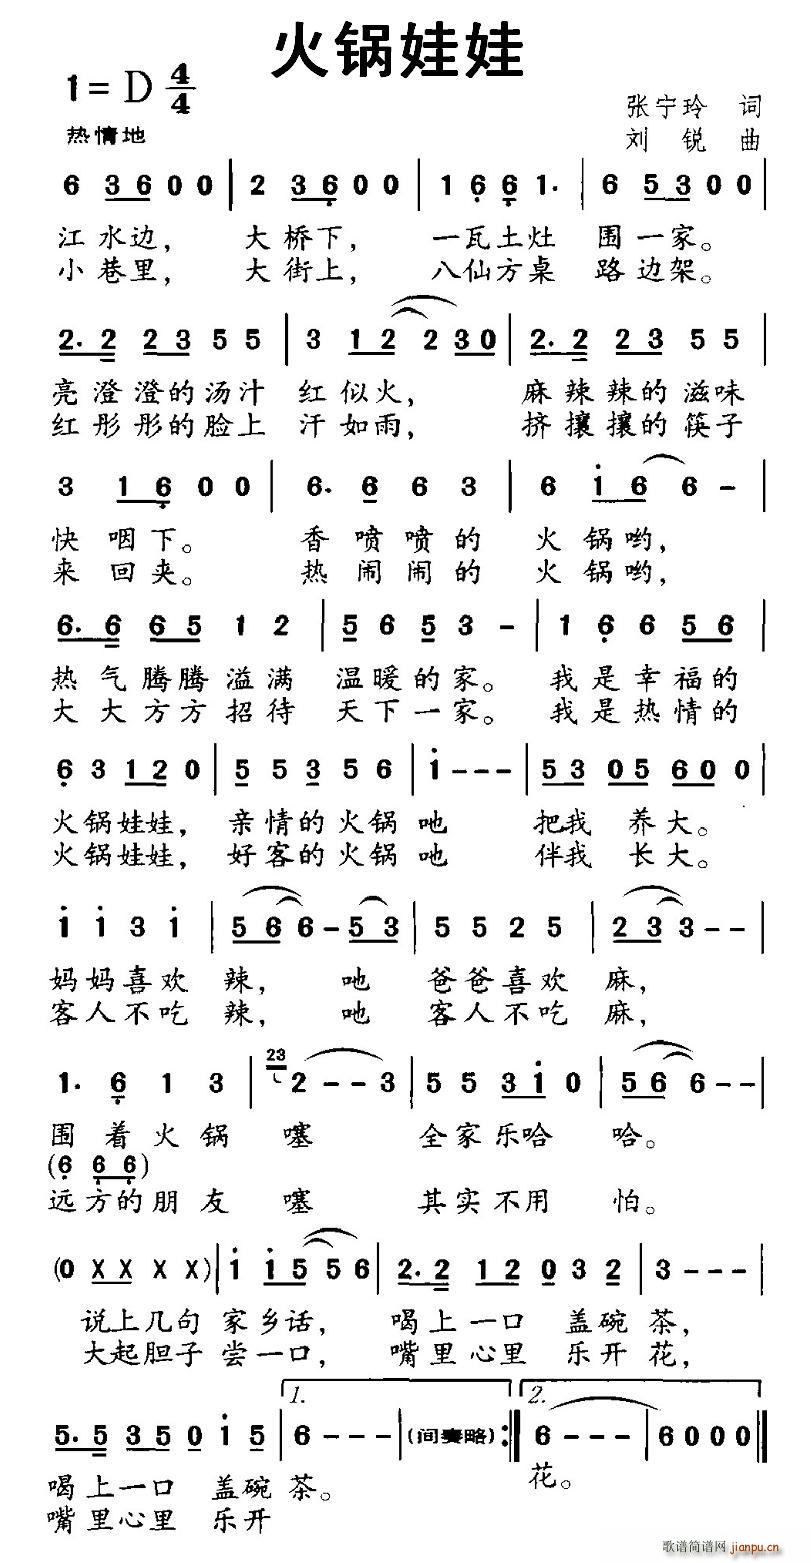 火锅娃娃
1=D 4/4
张宁玲 词
热情地
刘锐 曲
6 3 6 0 0 | 2 3 6 0 0 | 1 6 6 1· | 6 5 3 0 0 |
江水边， 大桥下， 一瓦土灶 围一家。
小巷里， 大街上， 八仙方桌 路边架。
2· 2 2 3 5 5 | 3 1 2 2 3 0 | 2· 2 2 3 5 5 |
亮澄澄的汤汁 红似火， 麻辣辣的滋味
红彤彤的脸上 汗如雨， 挤攘攘的筷子
3 1 6 0 0 | 6· 6 6 3 | 6 1 6 6 - |
快咽下。 香喷喷的 火锅哟，
来回夹。 热闹闹的 火锅哟，
6· 6 6 5 1 2 | 5 6 5 3 - | 1 6 6 5 6 |
热气腾腾溢满 温暖的家。 我是幸福的
大大方方招待 天下一家。 我是热情的
6 3 1 2 0 | 5 5 3 5 6 | 1 - - - | 5 3 0 5 6 0 0 |
火锅娃娃， 亲情的火锅吔 把我养大。
火锅娃娃， 好客的火锅吔 伴我长大。
1 1 3 1 | 5 6 6 - 5 3 | 5 5 2 5 | 2 3 3 - - |
妈妈喜欢辣， 吔 爸爸喜欢麻，
客人不吃辣， 吔 客人不吃麻，
1· 6 1 3 | 23 2 - - 3 | 5 5 3 1 0 | 5 6 6 - - |
围着火锅噻 全家乐哈哈。
(6 6 6)
远方的朋友噻 其实不用怕。
(0 X X X X) | 1 1 5 5 6 | 2· 2 1 2 0 3 2 | 3 - - - |
说上几句家乡话， 喝上一口盖碗茶，
大起胆子尝一口， 嘴里心里乐开花，
1. 2.
5· 5 3 5 0 1 5 | 6 - - - | (间奏略) :‖ 6 - - - | 6 0 0 0 ‖
喝上一口盖碗茶。 花。
嘴里心里乐开
歌谱简谱网
jianpu.cn